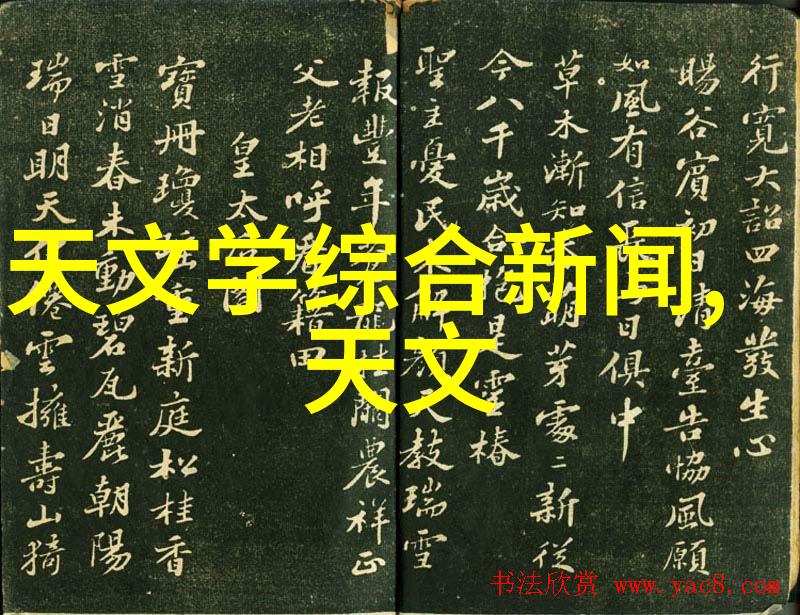 行寬大詔四海發生心
暘谷賓初日清臺告協風願
如風有信日俱中
草木漸知萌芽處二新從
今八千歲合抱是靈椿
聖主憂民未解顏天教瑞雪
報豐年龍挂闕農祥正
父老相呼看籍田
皇太
寶冊瓊瑤重新庭松桂香
雪消春未動碧瓦麗朝陽
瑞日明天雲擁壽山猗
天文学综合新闻,
天文
书法欣赏 www.yac8.com